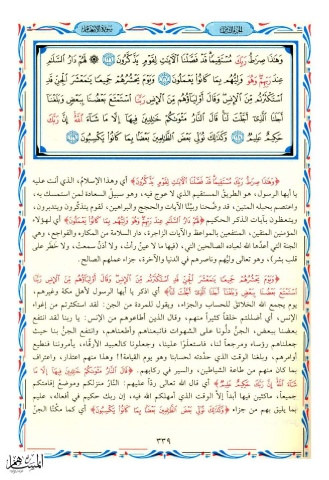 وَهَٰذَا صِرَٰطُ رَبِّكَ مُسْتَقِيمًا قَدْ فَصَّلْنَا ٱلْءَايَٰتِ لِقَوْمٍ يَذَّكَّرُونَ ۞ لَهُمْ دَارُ ٱلسَّلَٰمِ
عِندَ رَبِّهِمْ وَهُوَ وَلِيُّهُم بِمَا كَانُوا۟ يَعْمَلُونَ وَيَوْمَ يَحْشُرُهُمْ جَمِيعًا يَٰمَعْشَرَ ٱلْجِنِّ قَدِ
ٱسْتَكْثَرْتُم مِّنَ ٱلْإِنسِ وَقَالَ أَوْلِيَآؤُهُم مِّنَ ٱلْإِنسِ رَبَّنَا ٱسْتَمْتَعَ بَعْضُنَا بِبَعْضٍ وَبَلَغْنَآ
أَجَلَنَا ٱلَّذِىٓ أَجَّلْتَ لَنَا قَالَ ٱلنَّارُ مَثْوَىٰكُمْ خَٰلِدِينَ فِيهَآ إِلَّا مَا شَآءَ ٱللَّهُ إِنَّ رَبَّكَ
حَكِيمٌ عَلِيمٌ وَكَذَٰلِكَ نُوَلِّى بَعْضَ ٱلظَّٰلِمِينَ بَعْضًۢا بِمَا كَانُوا۟ يَكْسِبُونَ
﴿وَهَٰذَا صِرَٰطُ رَبِّكَ مُسْتَقِيمًا قَدْ فَصَّلْنَا ٱلْءَايَٰتِ لِقَوْمٍ يَذَّكَّرُونَ﴾ أي وهذا الإسلام، الذي أنت عليه
يا أيها الرسول، هو الطريق المستقيم الذي لا عوج فيه، وهو سبيل السعادة لمن استمسك به،
واعتصم بحبله المتين، قد وضَّحنا وبيَّنَّا الآيات والحجج والبراهين، لقوم يتذكرون ويتدبرون،
ويتعظون بآيات الذكر الحكيم ﴿لَهُمْ دَارُ ٱلسَّلَٰمِ عِندَ رَبِّهِمْ وَهُوَ وَلِيُّهُم بِمَا كَانُوا۟ يَعْمَلُونَ﴾ أي لهؤلاء
المؤمنين المتقين، المنتفعين بالمواعظ والآيات الزاجرة، دار السلامة من المكاره والفواجع، وهي
الجنة التي أعدَّها الله لعباده الصالحين التي، (فيها ما لا عينٌ رأت، ولا أذنٌ سمعتْ، ولا خطر على
قلب بشر)، وهو تعالى وليُّهم وناصرهم في الدنيا والآخرة، جزاء عملهم الصالح.
﴿وَيَوْمَ يَحْشُرُهُمْ جَمِيعًا يَٰمَعْشَرَ ٱلْجِنِّ قَدِ ٱسْتَكْثَرْتُم مِّنَ ٱلْإِنسِ وَقَالَ أَوْلِيَآؤُهُم مِّنَ ٱلْإِنسِ رَبَّنَا
ٱسْتَمْتَعَ بَعْضُنَا بِبَعْضٍ وَبَلَغْنَآ أَجَلَنَا ٱلَّذِىٓ أَجَّلْتَ لَنَا﴾ أي اذكر يا أيها الرسول لأهل مكة وغيرهم،
يوم يجمع الله الخلائق للحساب والجزاء، ويقول للمردة من الجن: لقد استكثرتم من إغواء
الإنس، أي أضللتم خلقاً كثيراً منهم، وقال الذين أطاعوهم من الإنس: يا ربنا لقد انتفع
بعضنا ببعض، الجنُّ دلُّونا على الشهوات فاتبعناهم وأطعناهم، وانتفع الجنُّ بنا حيث
جعلناهم رؤساء ومرجعاً لنا، فاستعلَوْا علينا، وجعلونا كالعبيد الأرقاء، يأمروننا فنطيع
أوامرهم، وبلغنا الوقت الذي حدَّدته لحسابنا وهو يوم القيامة!! وهذا منهم اعتذار، واعتراف
بما كان منهم من طاعة الشياطين، والسير في ركابهم. ﴿قَالَ ٱلنَّارُ مَثْوَىٰكُمْ خَٰلِدِينَ فِيهَآ إِلَّا مَا
شَآءَ ٱللَّهُ إِنَّ رَبَّكَ حَكِيمٌ عَلِيمٌ﴾ أي قال الله تعالى رداً عليهم: النَّار منزلكم وموضعُ إقامتكم
جميعاً، ماكثين فيها أبداً إلاَّ الوقت الذي أمهلكم الله فيه، إن ربك حكيم في أفعاله، عليم
بما يليق بهم من جزاء ﴿وَكَذَٰلِكَ نُوَلِّى بَعْضَ ٱلظَّٰلِمِينَ بَعْضًۢا بِمَا كَانُوا۟ يَكْسِبُونَ﴾ أي كما مكَّنَّا الجنَّ
٣٣٩